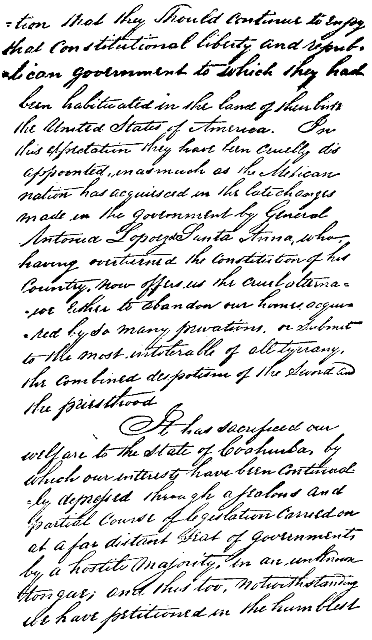 =tion that they Should continue to Enjoy
that Constitutional liberty and repub-
=lican government to which they had
been habituated in the land of their birth
the United States of America. In
this expectation they have been cruelly dis
appointed, inasmuch as the Mexican
nation has acquiesced in the late changes
made in the Government by General
Antonio Lopez de Santa Anna, who
having overturned the constitution of his
Country, now offers us the cruel alterna-
-ive Either to abandon our homes, acqui-
-red by so many privations, or submit
to the most intolerable of all tyranny,
the combined despotism of the Sword and
the priesthood
It has sacrificed our
welfare to the State of Coahuila, by
which our interests have been continual
=ly depressed through a jealous and
partial course of legislation carried on
at a far distant Seat of Government,
by a hostile Majority, in an unknown
tongue; and this too, notwithstanding
we have petitioned in the humblest